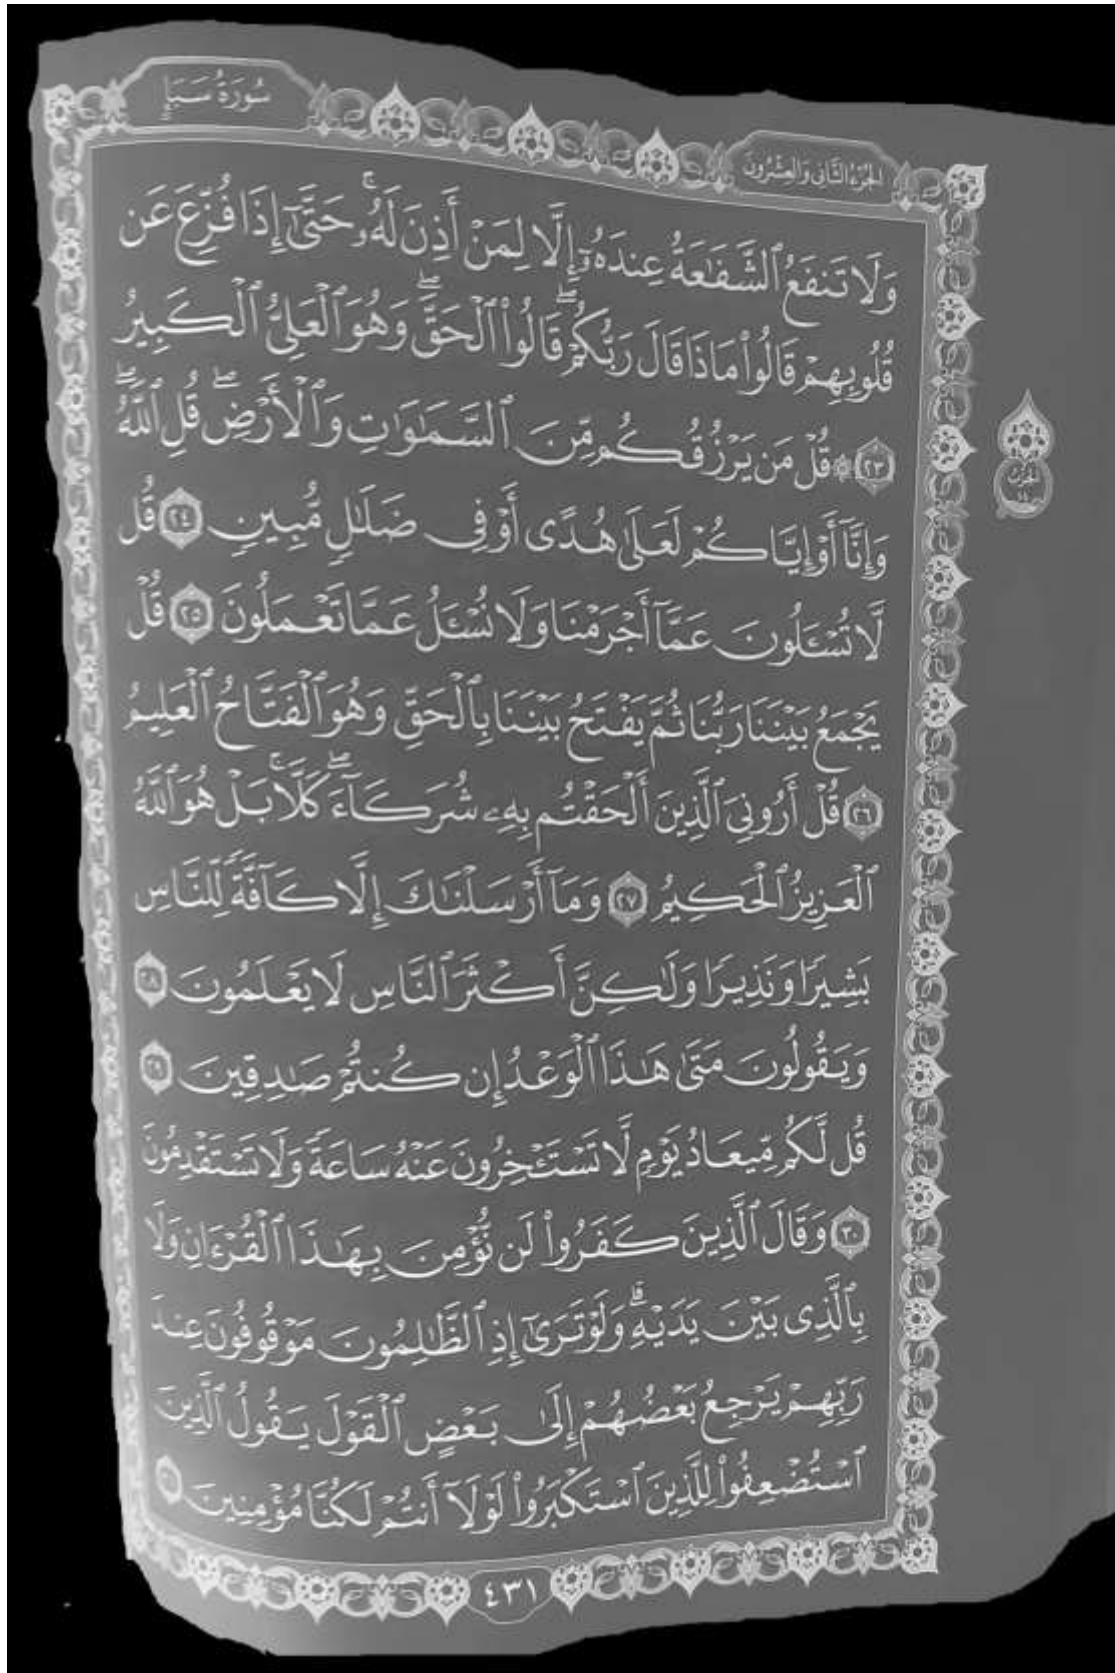 سُورَةُ سَبَإٍ
الجُزْءُ الثَّانِي وَالعِشْرُونَ
وَلَا تَنفَعُ ٱلشَّفَٰعَةُ عِندَهُۥٓ إِلَّا لِمَنْ أَذِنَ لَهُۥۚ حَتَّىٰٓ إِذَا فُزِّعَ عَن
قُلُوبِهِمْ قَالُوا۟ مَاذَا قَالَ رَبُّكُمْۖ قَالُوا۟ ٱلْحَقَّۖ وَهُوَ ٱلْعَلِىُّ ٱلْكَبِيرُ
٢٣ ۞ قُلْ مَن يَرْزُقُكُم مِّنَ ٱلسَّمَٰوَٰتِ وَٱلْأَرْضِۖ قُلِ ٱللَّهُۖ
وَإِنَّآ أَوْ إِيَّاكُمْ لَعَلَىٰ هُدًى أَوْ فِى ضَلَٰلٍ مُّبِينٍ ٢٤ قُل
لَّا تُسْـَٔلُونَ عَمَّآ أَجْرَمْنَا وَلَا نُسْـَٔلُ عَمَّا تَعْمَلُونَ ٢٥ قُلْ
يَجْمَعُ بَيْنَنَا رَبُّنَا ثُمَّ يَفْتَحُ بَيْنَنَا بِٱلْحَقِّ وَهُوَ ٱلْفَتَّاحُ ٱلْعَلِيمُ
٢٦ قُلْ أَرُونِىَ ٱلَّذِينَ أَلْحَقْتُم بِهِۦ شُرَكَآءَۖ كَلَّاۚ بَلْ هُوَ ٱللَّهُ
ٱلْعَزِيزُ ٱلْحَكِيمُ ٢٧ وَمَآ أَرْسَلْنَٰكَ إِلَّا كَآفَّةً لِّلنَّاسِ
بَشِيرًا وَنَذِيرًا وَلَٰكِنَّ أَكْثَرَ ٱلنَّاسِ لَا يَعْلَمُونَ ٢٨
وَيَقُولُونَ مَتَىٰ هَٰذَا ٱلْوَعْدُ إِن كُنتُمْ صَٰدِقِينَ ٢٩
قُل لَّكُم مِّيعَادُ يَوْمٍ لَّا تَسْتَـْٔخِرُونَ عَنْهُ سَاعَةً وَلَا تَسْتَقْدِمُونَ
٣٠ وَقَالَ ٱلَّذِينَ كَفَرُوا۟ لَن نُّؤْمِنَ بِهَٰذَا ٱلْقُرْءَانِ وَلَا
بِٱلَّذِى بَيْنَ يَدَيْهِۗ وَلَوْ تَرَىٰٓ إِذِ ٱلظَّٰلِمُونَ مَوْقُوفُونَ عِندَ
رَبِّهِمْ يَرْجِعُ بَعْضُهُمْ إِلَىٰ بَعْضٍ ٱلْقَوْلَ يَقُولُ ٱلَّذِينَ
ٱسْتُضْعِفُوا۟ لِلَّذِينَ ٱسْتَكْبَرُوا۟ لَوْلَآ أَنتُمْ لَكُنَّا مُؤْمِنِينَ
٤٣١